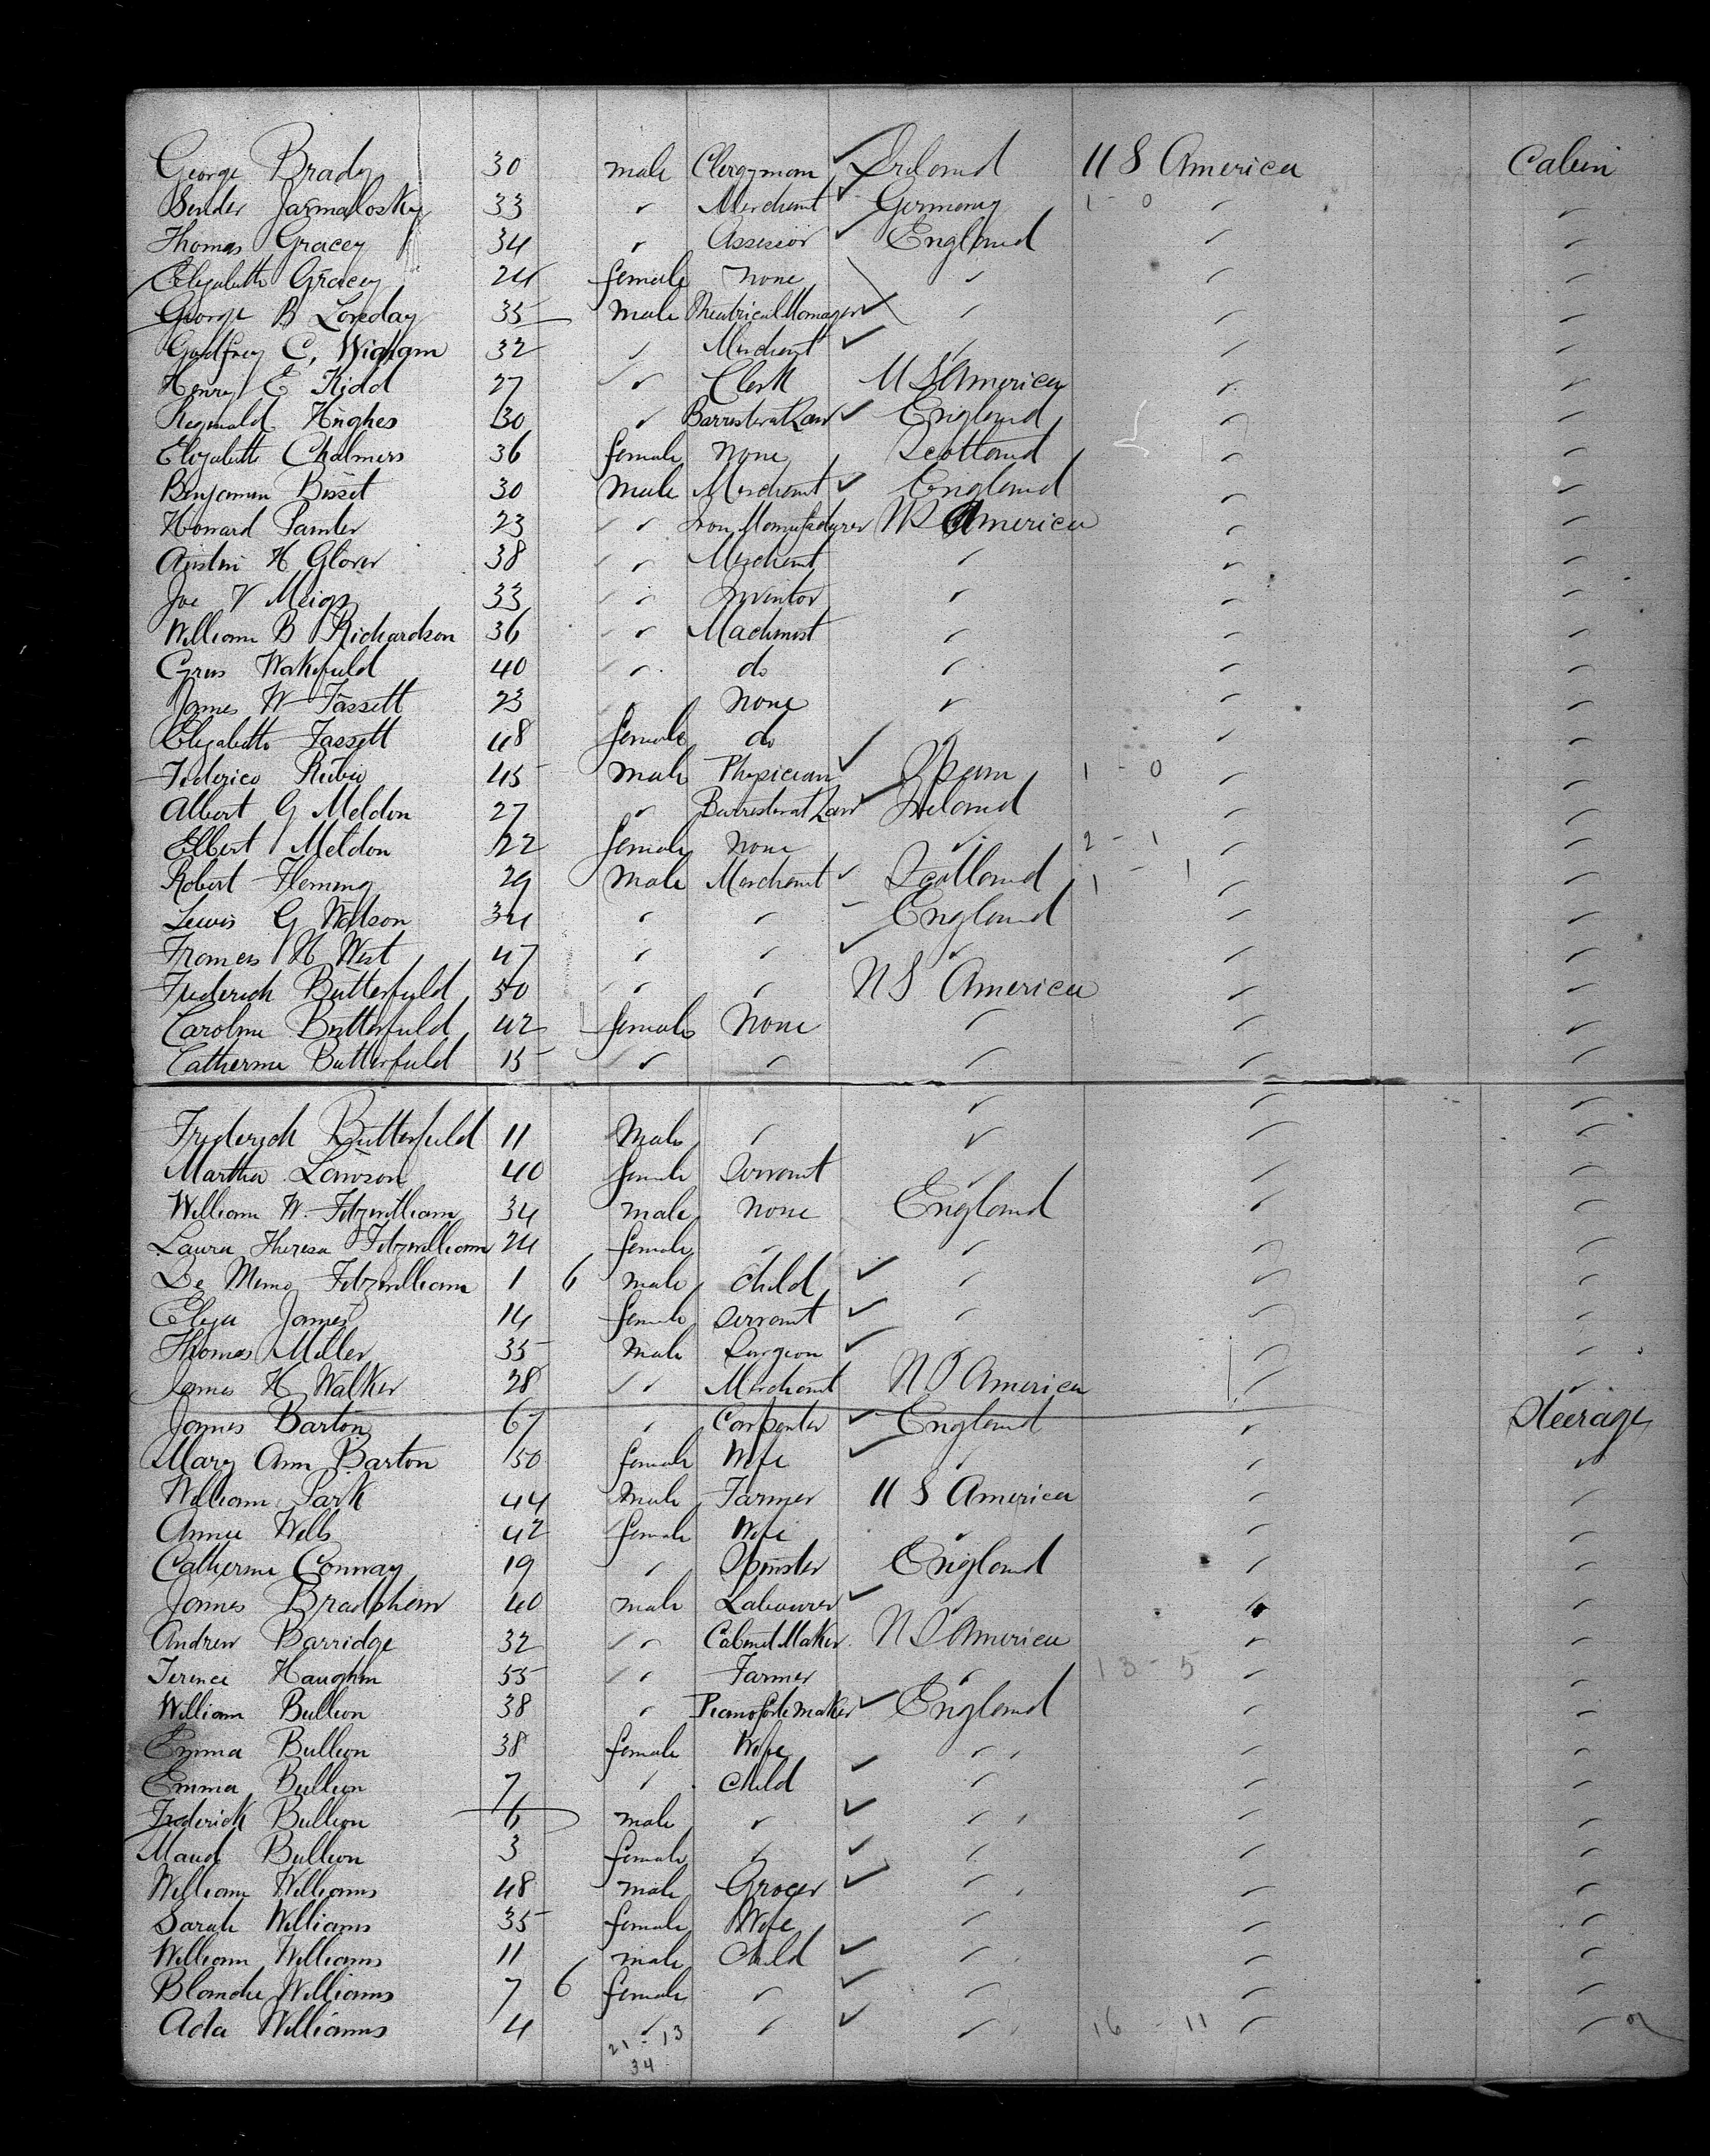 George Brady 30 male Clergyman ✓ Ireland U S America Cabin
Sender Jarmalosky 33 " Merchant ✓ Germany 1 - 0 " "
Thomas Gracey 34 " Assessor ✓ England " "
Elizabeth Gracey 24 female none " " "
George B Loveday 35 male Theatrical Manager ✓ " " "
Godfrey C. Wigham 32 " Merchant ✓ " " "
Henry E Kidd 27 " Clerk U S America " "
Reginald Hughes 30 " Barrister at Law ✓ England " "
Elizabeth Chalmers 36 female none Scotland " "
Benjamin Bisset 30 male Merchant ✓ England " "
Howard 23 " Iron Manufacturer U S America " "
Austin H Glover 38 " Merchant " " "
Joe V Meigs 33 " Inventor " " "
William B Richardson 36 " Machinist " " "
Cyrus Wakefield 40 " do " " "
James W Fassett 23 " none " " "
Elizabeth Fassett 48 female do " " "
Federico Rubio 45 male Physician ✓ Spain 1 - 0 " "
Albert G Meldon 27 " Barrister at Law ✓ Ireland " "
Elbert Meldon 22 female none " 2 - 1 " "
Robert Fleming 29 male Merchant ✓ Scotland 1 - 1 " "
Lewis G Watson 34 " " England " "
Frances H West 47 " " ✓ " " "
Frederick Butterfield 50 " " U S America " "
Caroline Butterfield 42 female none " " "
Catherine Butterfield 15 " " " " "
Frederick Butterfield 11 male " " " "
Martha Lawson 40 female Servant " " "
William W. Fitzwilliam 34 male none England " "
Laura Theresa Fitzwilliam 24 female " " " "
Fitzwilliam 1 6 male child ✓ " " "
Eliza James 14 female servant ✓ " " "
Thomas Miller 35 male Surgeon ✓ " "
James H Walker 28 " Merchant U S America " "
James Barton 67 " Carpenter ✓ England " Steerage
Mary Ann Barton 50 female Wife ✓ " " "
William Park 44 male Farmer U S America " "
Annie Wells 42 female Wife " " "
Catherine Conway 19 " Spinster England " "
James 40 male Labourer ✓ " " "
Andrew Barridge 32 " Cabinet Maker U S America " "
Terence Haughm 55 " Farmer " 13 - 5 " "
William Bullion 38 " Pianoforte maker ✓ England " "
Emma Bullion 38 female Wife " " "
Emma Bullion 7 " child ✓ " " "
Frederick Bullion 6 male " ✓ " " "
Maud Bullion 3 female " ✓ " " "
William Williams 48 male Grocer ✓ " " "
Sarah Williams 35 female Wife " " "
William Williams 11 male Child ✓ " " "
Blanche Williams 7 6 female " ✓ " " "
Ada Williams 4 " " ✓ " 16 - 11 " "
21 - 13
34